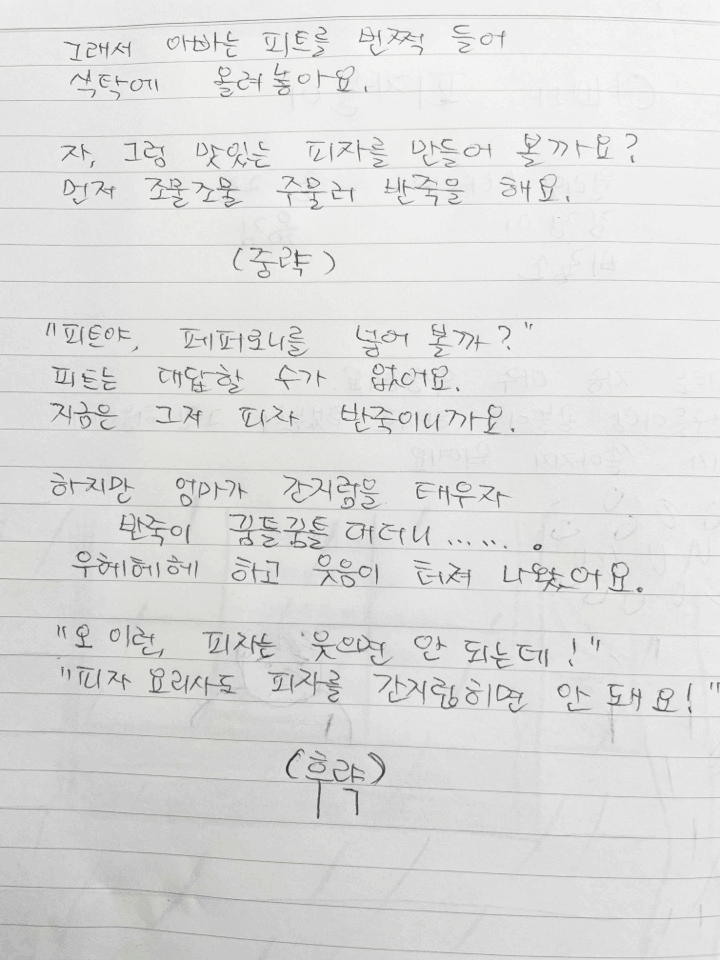 그래서 아빠는 피트를 번쩍 들어
식탁에 올려놓아요.
자, 그럼 맛있는 피자를 만들어 볼까요?
먼저 조물조물 주물러 반죽을 해요.
(중략)
"피트야, 페퍼로니를 넣어 볼까?"
피트는 대답할 수가 없어요.
지금은 그저 피자 반죽이니까요.
하지만 엄마가 간지럼을 태우자
반죽이 꿈틀꿈틀대더니.......
우헤헤헤 하고 웃음이 터져 나왔어요.
"오 이런, 피자는 웃으면 안 되는데!"
"피자 요리사도 피자를 간지럽히면 안 돼요!"
(후략)